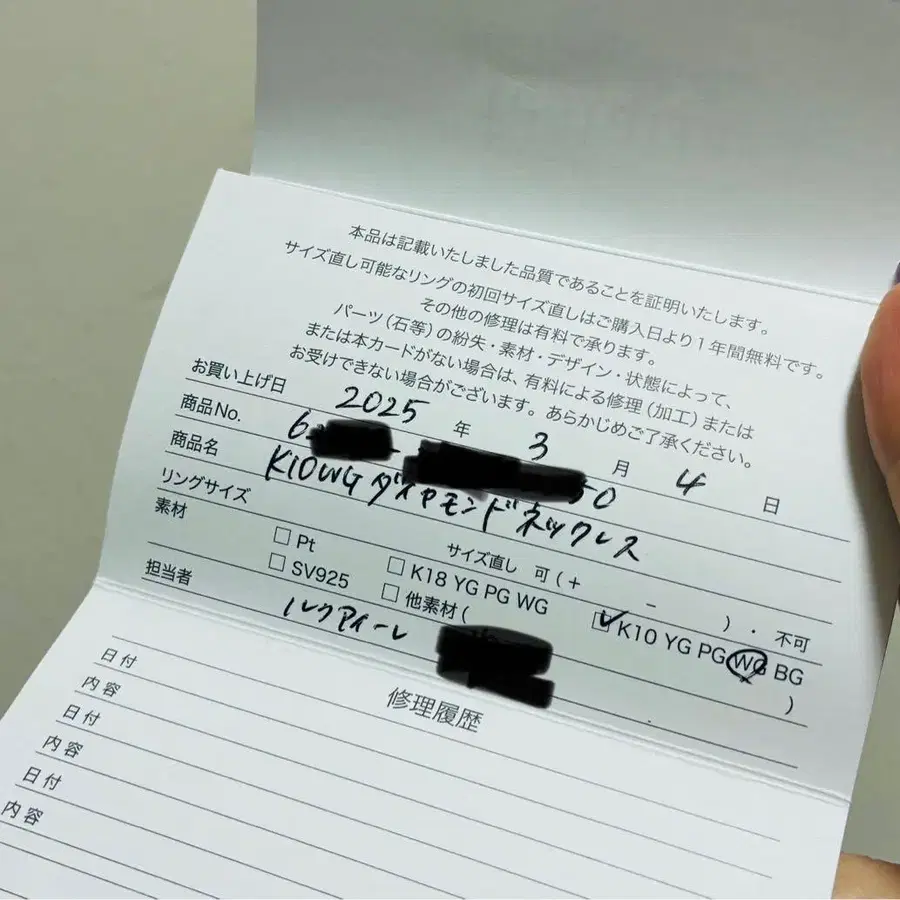 本品は記載いたしました品質であることを証明いたします。
サイズ直し可能なリングの初回サイズ直しはご購入日より1年間無料です。
その他の修理は有料で承ります。
パーツ(石等)の紛失・素材・デザイン・状態によって、
または本カードがない場合は、有料による修理(加工)または
お受けできない場合がございます。あらかじめご了承ください。
お買い上げ日 2025 年 3 月 4 日
商品No. 6 50
商品名 K10WG ダイヤモンドネックレス
リングサイズ サイズ直し 可(+ − )・不可
素材 □ Pt □ K18 YG PG WG ☑ K10 YG PG WG BG
□ SV925 □ 他素材( )
担当者
修理履歴
日付
内容
日付
内容
日付
内容